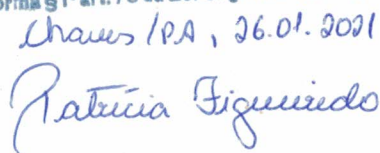 Chaves/PA, 26.01.2021
Patrícia Figueiredo